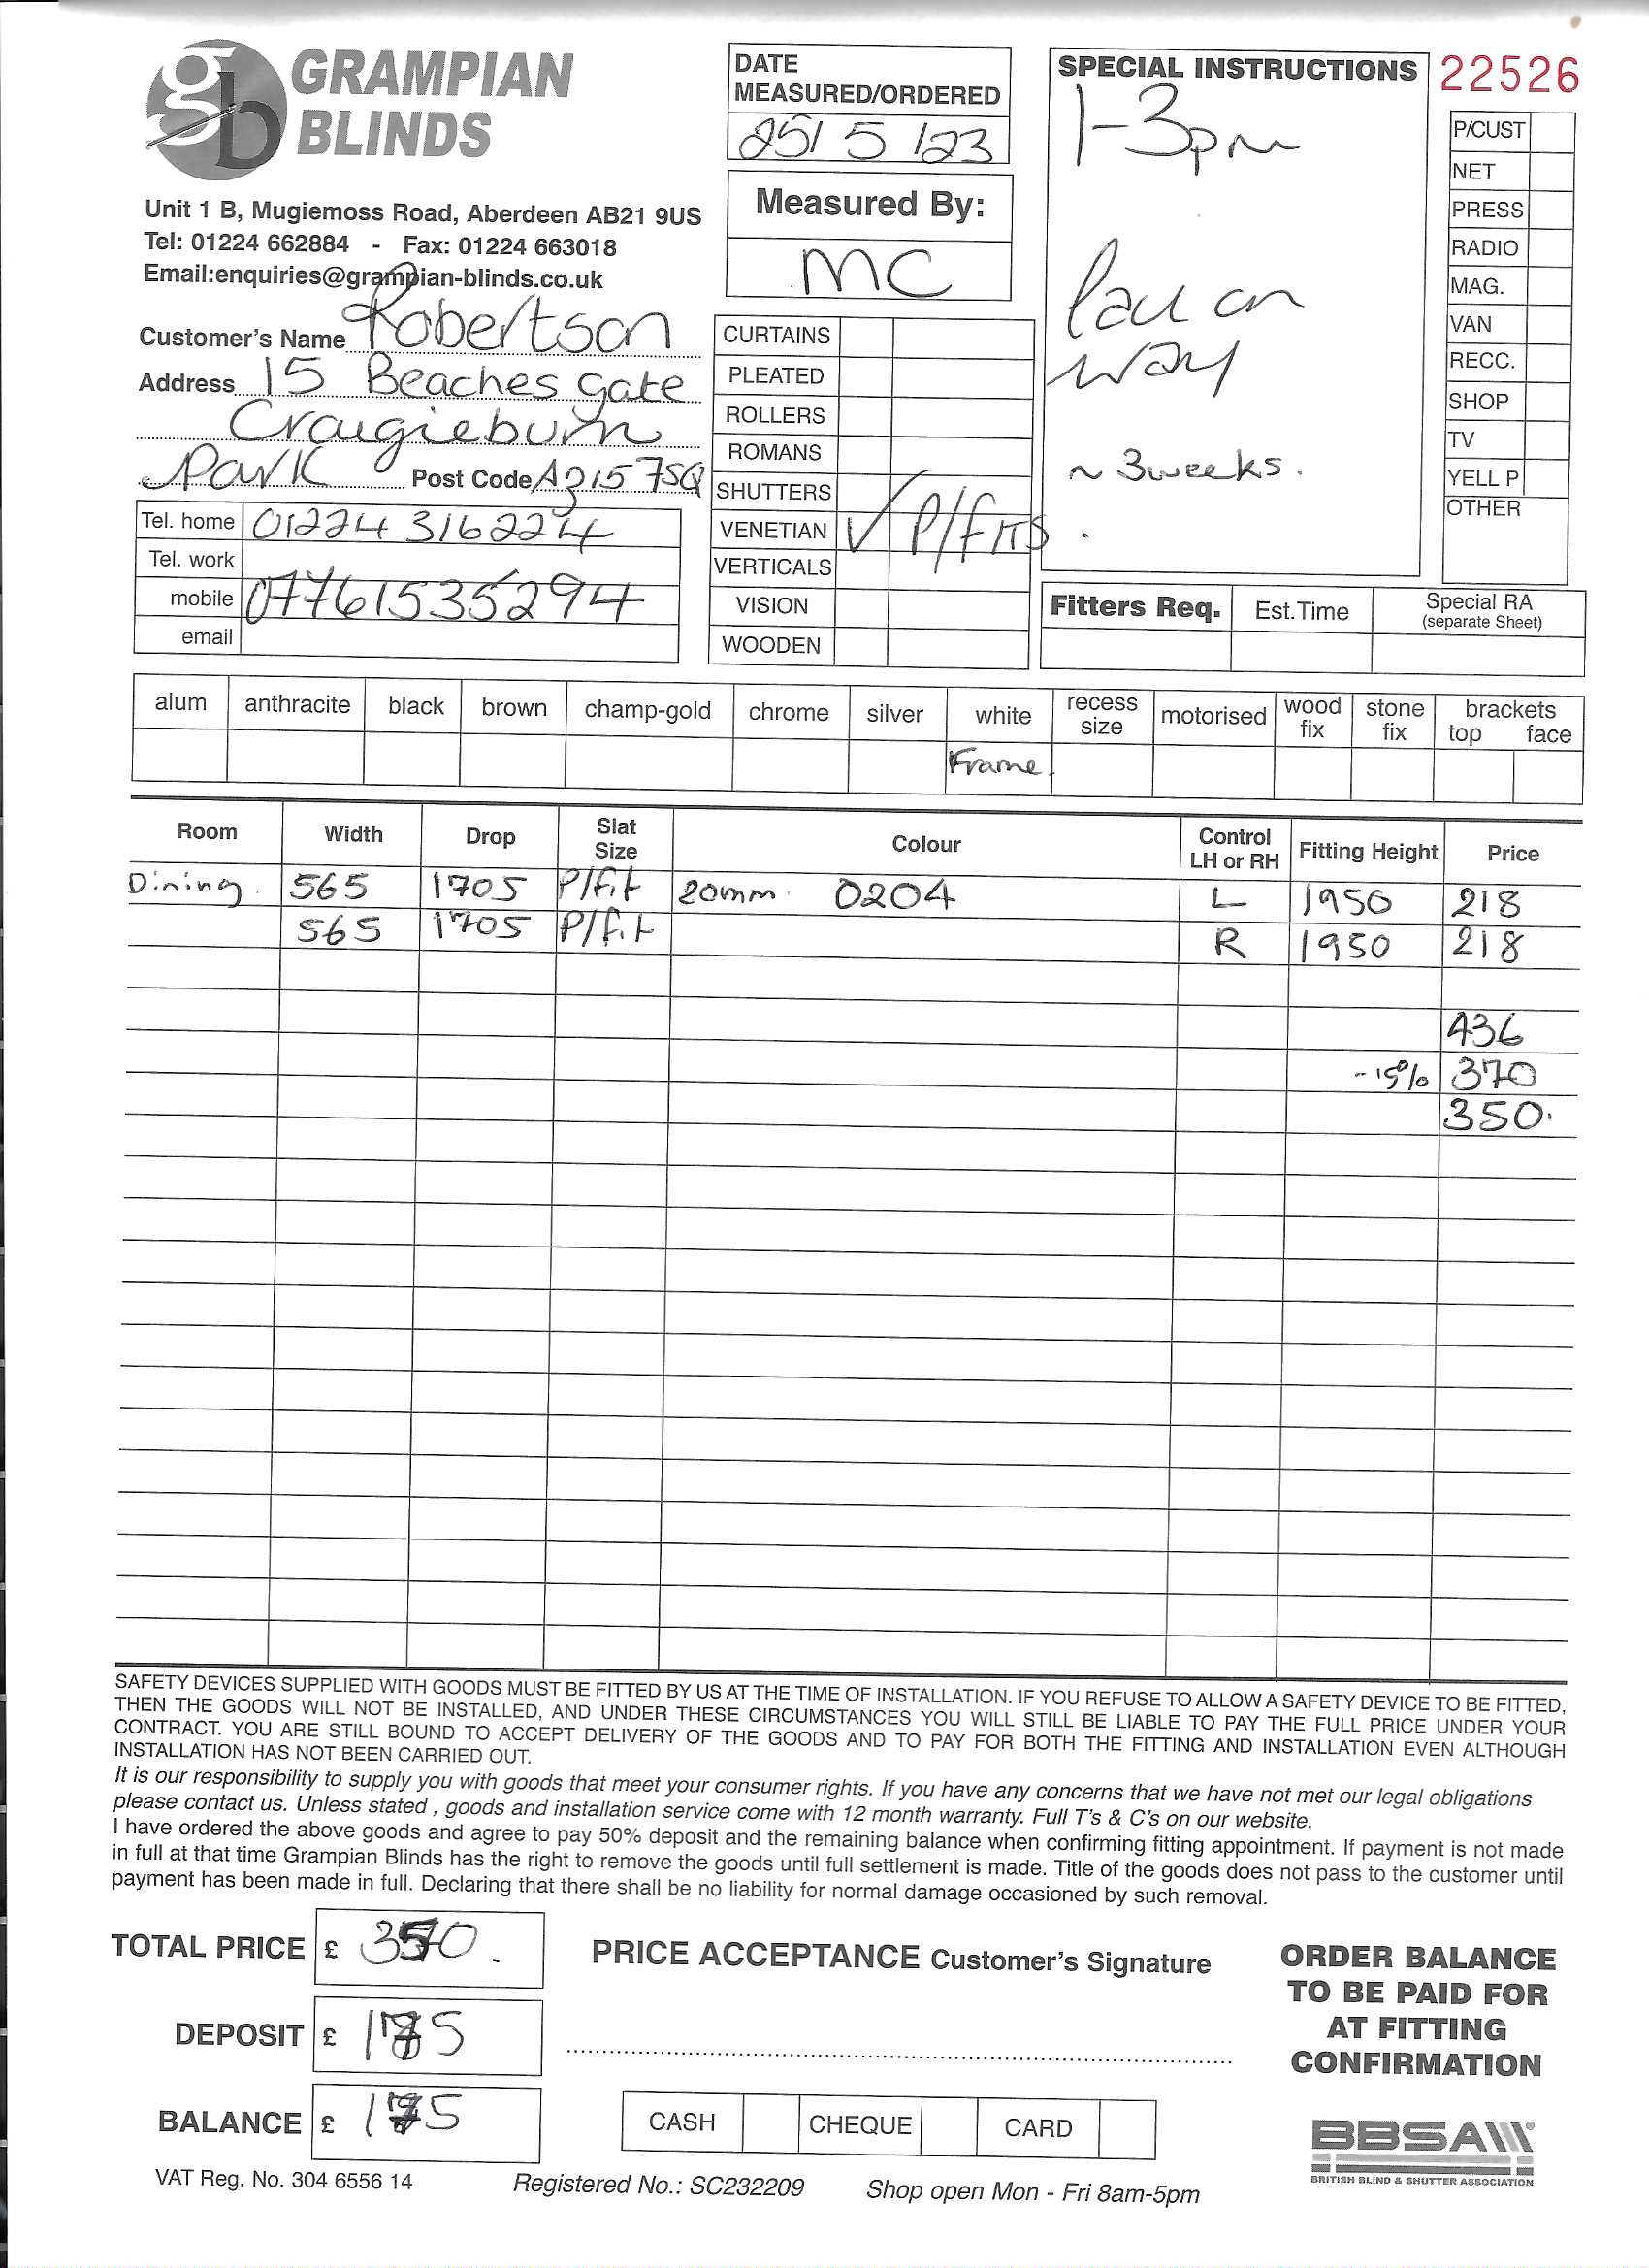 GRAMPIAN
BLINDS
Unit 1 B, Mugiemoss Road, Aberdeen AB21 9US
Tel: 01224 662884 - Fax: 01224 663018
Email:enquiries@grampian-blinds.co.uk
Customer's Name Robertson
Address 15 Beaches gate
Craigieburn
Park Post Code AB15 7SQ
Tel. home 01224 316224
Tel. work
mobile 07761535294
email
DATE
MEASURED/ORDERED
25/5/23
Measured By:
MC
CURTAINS
PLEATED
ROLLERS
ROMANS
SHUTTERS
VENETIAN ✓ P/FITS.
VERTICALS
VISION
WOODEN
SPECIAL INSTRUCTIONS
1-3pm
on
way
~ 3weeks.
22526
P/CUST
NET
PRESS
RADIO
MAG.
VAN
RECC.
SHOP
TV
YELL P
OTHER
Fitters Req. Est.Time Special RA
(separate Sheet)
alum anthracite black brown champ-gold chrome silver white recess size motorised wood fix stone fix brackets top face
Frame.
Room Width Drop Slat Size Colour Control LH or RH Fitting Height Price
Dining. 565 1705 P/fit 20mm. 0204 L 1950 218
565 1705 P/fit R 1950 218
436
-15% 370
350.
SAFETY DEVICES SUPPLIED WITH GOODS MUST BE FITTED BY US AT THE TIME OF INSTALLATION. IF YOU REFUSE TO ALLOW A SAFETY DEVICE TO BE FITTED,
THEN THE GOODS WILL NOT BE INSTALLED, AND UNDER THESE CIRCUMSTANCES YOU WILL STILL BE LIABLE TO PAY THE FULL PRICE UNDER YOUR
CONTRACT. YOU ARE STILL BOUND TO ACCEPT DELIVERY OF THE GOODS AND TO PAY FOR BOTH THE FITTING AND INSTALLATION EVEN ALTHOUGH
INSTALLATION HAS NOT BEEN CARRIED OUT.
It is our responsibility to supply you with goods that meet your consumer rights. If you have any concerns that we have not met our legal obligations
please contact us. Unless stated , goods and installation service come with 12 month warranty. Full T's & C's on our website.
I have ordered the above goods and agree to pay 50% deposit and the remaining balance when confirming fitting appointment. If payment is not made
in full at that time Grampian Blinds has the right to remove the goods until full settlement is made. Title of the goods does not pass to the customer until
payment has been made in full. Declaring that there shall be no liability for normal damage occasioned by such removal.
TOTAL PRICE £ 350.
DEPOSIT £ 175
BALANCE £ 175
PRICE ACCEPTANCE Customer's Signature
CASH CHEQUE CARD
ORDER BALANCE
TO BE PAID FOR
AT FITTING
CONFIRMATION
BBSA
BRITISH BLIND & SHUTTER ASSOCIATION
VAT Reg. No. 304 6556 14 Registered No.: SC232209 Shop open Mon - Fri 8am-5pm